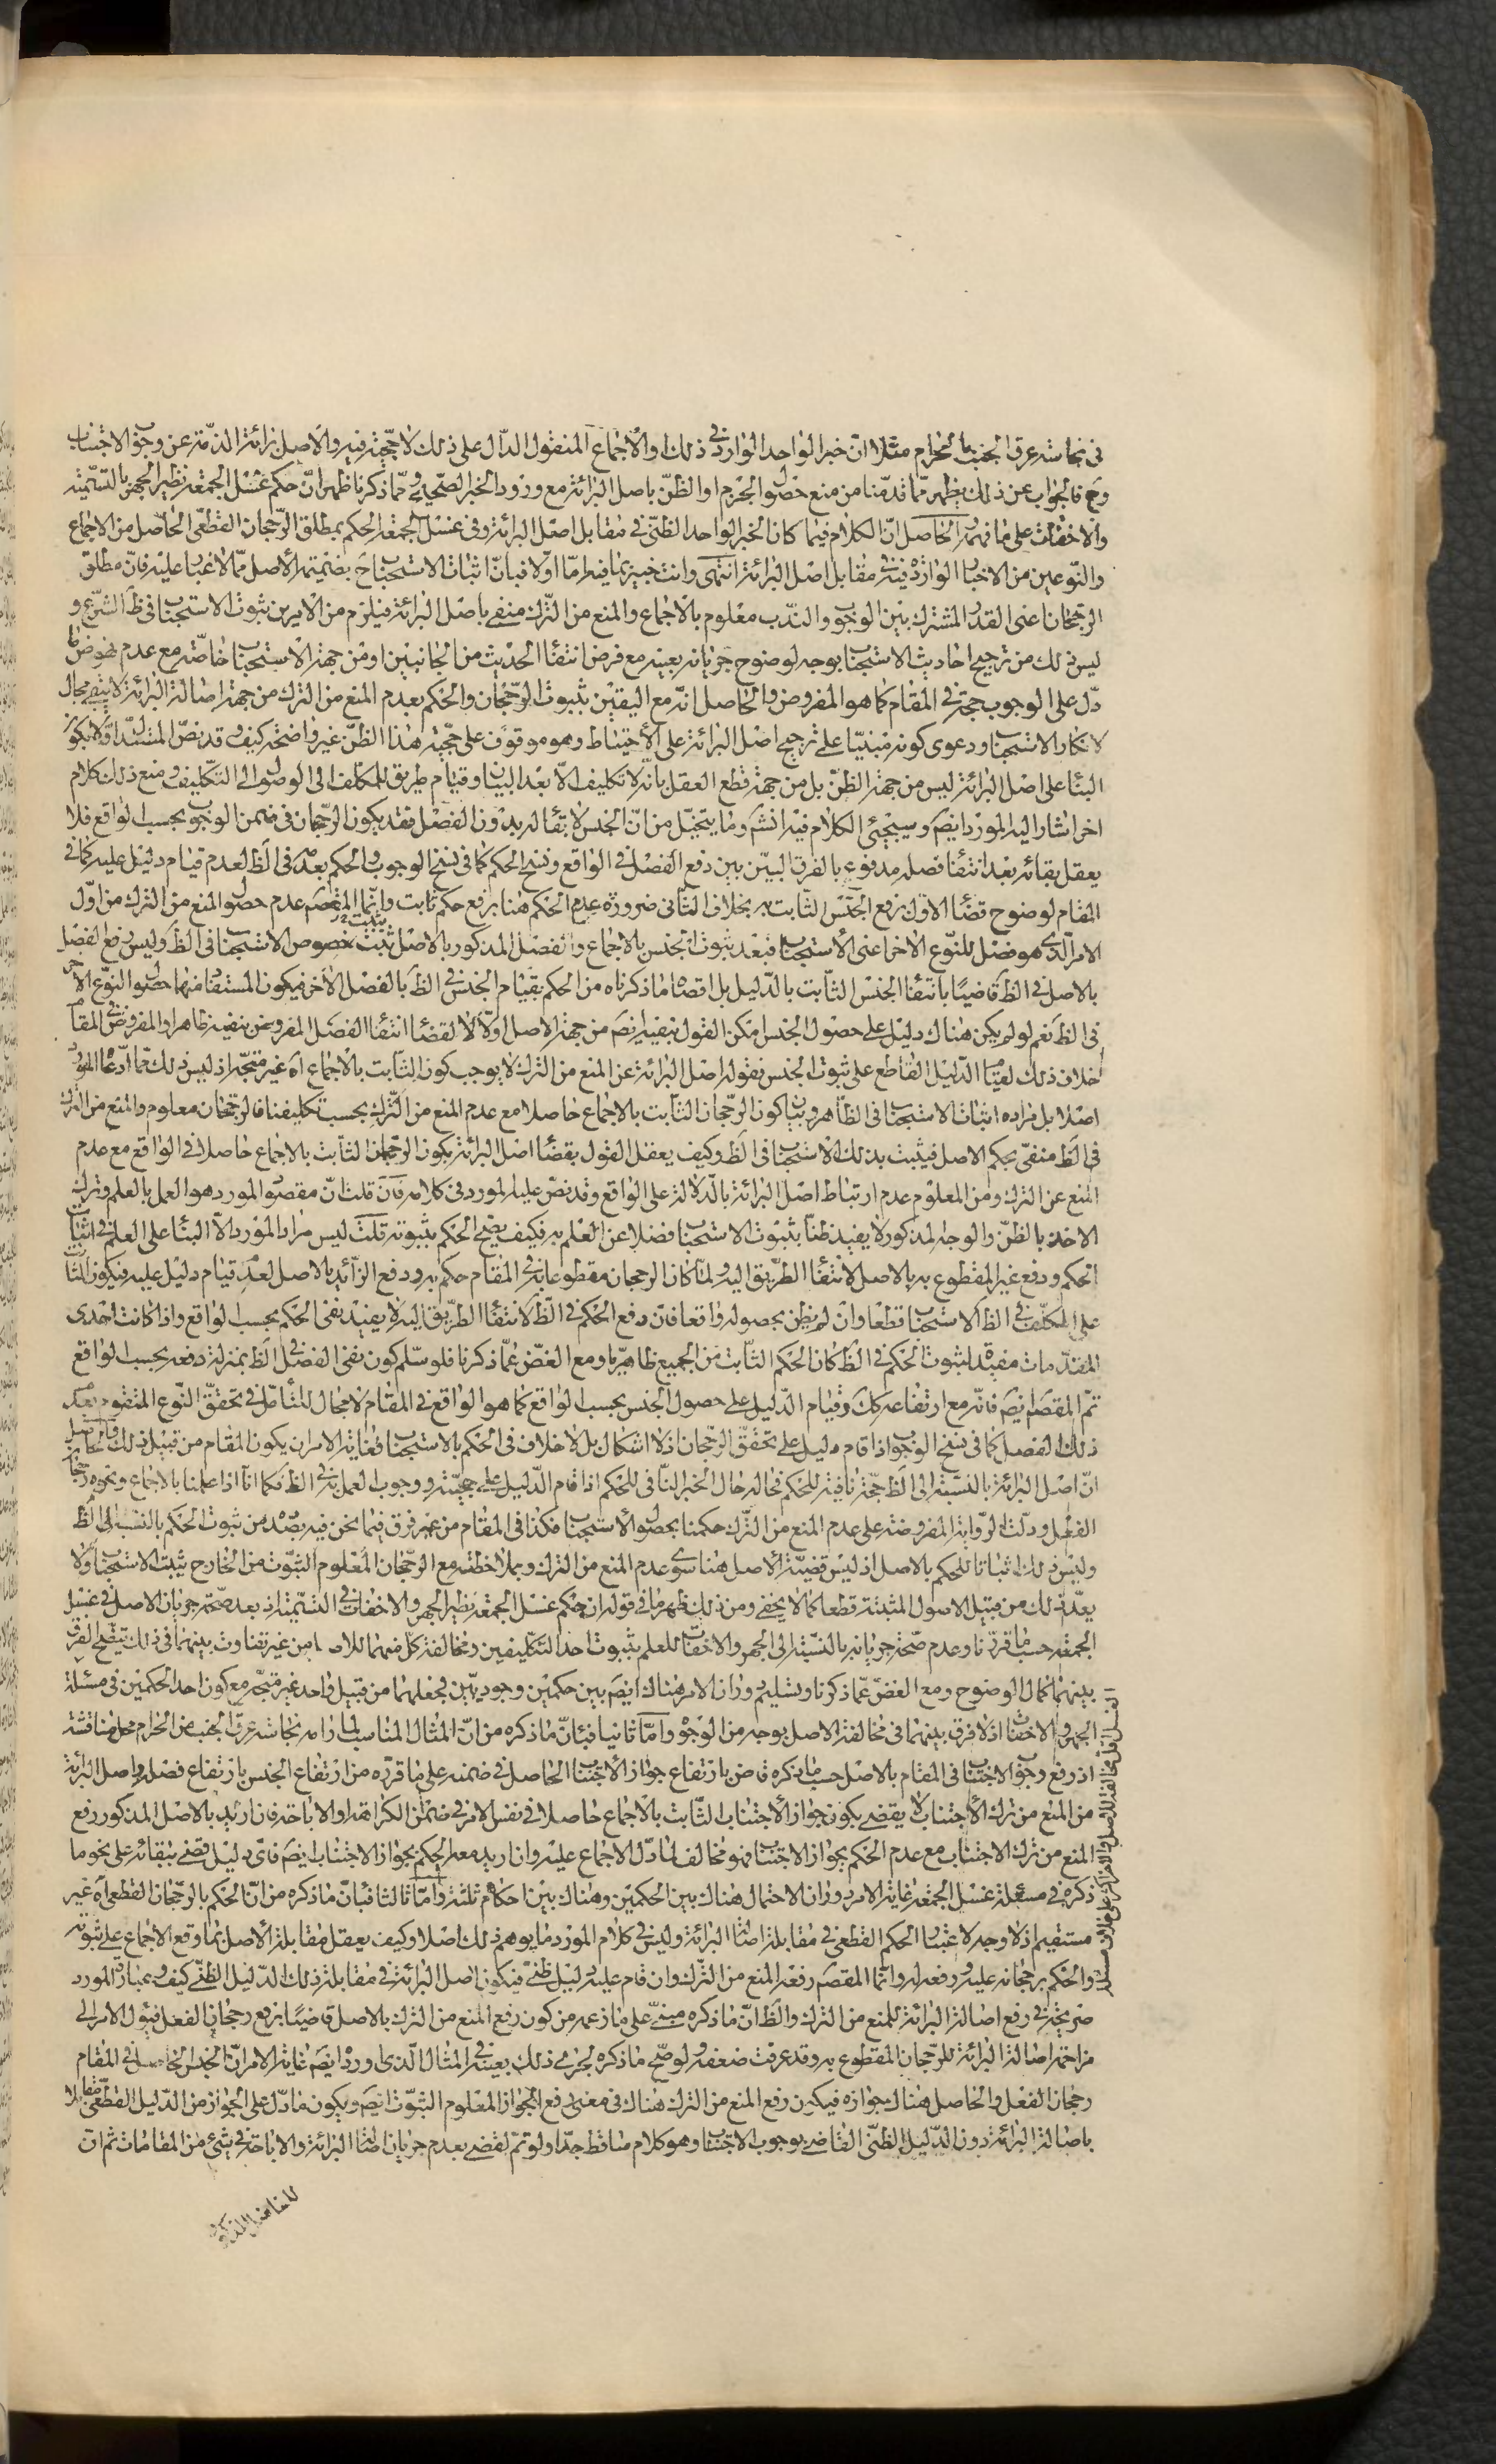 فى نجاسة عرق الجنب بالحرام مثلا ان خبر الواحد الوارد فى ذلك او الاجماع المنقول الدال على ذلك لا حجية فيه والاصل برائة الذمة عن وجوب الاجتناب
وح فالجواب عن ذلك يظهر مما قدمنا من منع حصول الجزم او الظن باصل البرائة مع ورود الخبر الصحيح ومما ذكرنا ظهر ان حكم غسل الجمعة نظير الجهر بالتسمية
والاخفات على ما فهمه والحاصل ان الكلام فيما كان الخبر الواحد الظنى فى مقابل اصل البرائة وفى غسل الجمعة الحكم بمطلق الرجحان القطعى الحاصل من الاجماع
والنوعين من الاخبار الواردة فيه فى مقابل اصل البرائة انتهى وانت خبير بما فيه اما اولا فبان اثبات الاستحباب ح بضميمة الاصل مما لا غبار عليه فان مطلق
الرجحان اعنى القدر المشترك بين الوجوب والندب معلوم بالاجماع والمنع من الترك منفى باصل البرائة فيلزم من الامرين ثبوت الاستحباب فى ظ الشرع و
ليس ذلك من ترجيح احاديث الاستحباب بوجه لوضوح جريانه بعينه مع فرض انتفاء الحديث من الجانبين او من جهة الاستحباب خاصة مع عدم نهوض ما
دل على الوجوب حجة فى المقام كما هو المفروض والحاصل انه مع اليقين بثبوت الرجحان والحكم بعدم المنع من الترك من جهة اصالة البرائة لا يبقى مجال
لانكار الاستحباب ودعوى كونه مبنيا على ترجيح اصل البرائة على الاحتياط وهو موقوف على حجية هذا الظن غير واضحة كيف وقد نص المستدل اولا بكون
البناء على اصل البرائة ليس من جهة الظن بل من جهة قطع العقل بانه لا تكليف الا بعد البيان وقيام طريق للمكلف الى الوصول الى التكليف ومنع ذلك كلام
اخر اشار اليه المورد ايضم وسيجيئ الكلام فيه انشم وما يتخيل من ان الجنس لا بقاء له بدون الفصل فقد يكون الرجحان فى ضمن الوجوب بحسب الواقع فلا
يعقل بقائه بعد انتفاء فصله مدفوع بالفرق البين بين دفع الفصل فى الواقع ونسخ الحكم كما فى نسخ الوجوب والحكم بعدمه فى الظ لعدم قيام دليل عليه كما فى
المقام لوضوح قضاء الاول برفع الجنس الثابت به بخلاف الثانى ضرورة عدم الحكم هنا برفع حكم ثابت وانما المقصم عدم حصول المنع من الترك من اول
الامر الذى هو فصل للنوع الاخر اعنى الاستحباب فبعد ثبوت الجنس بالاجماع والفصل المذكور بالاصل يثبت خصوص الاستحباب فى الظ وليس رفع الفصل
بالاصل فى الظ قاضيا بانتفاء الجنس الثابت بالدليل بل اقصاه ما ذكرناه من الحكم بقيام الجنس فى الظ بالفصل الاخر فيكون المستفاد منهما حصول النوع الاخر
فى الظ نعم لو لم يكن هناك دليل على حصول الجنس امكن القول بنفيه ايضم من جهة الاصل اولا لا لقضاء انتفاء الفصل المفروض بنفيه ظاهرا والمفروض فى المقام
خلاف ذلك لقيام الدليل القاطع على ثبوت الجنس فقوله اصل البرائة عن المنع من الترك لا يوجب كون الثابت بالاجماع اه غير متجه اذ ليس ذلك مما ادعاه المورد
اصلا بل مراده اثبات الاستحباب فى الظاهر وبيان كون الرجحان الثابت بالاجماع حاصلا مع عدم المنع من الترك بحسب تكليفنا فالرجحان معلوم والمنع من الترك
فى الظ منفى بحكم الاصل فيثبت بذلك الاستحباب فى الظ وكيف يعقل القول بقضاء اصل البرائة بكون الرجحان الثابت بالاجماع حاصلا فى الواقع مع عدم
المنع عن الترك ومن المعلوم عدم ارتباط اصل البرائة بالدلالة على الواقع وقد نص عليه المورد فى كلامه فان قلت ان مقصود المورد هو العمل بالعلم وترك
الاخذ بالظن والوجه المذكور لا يفيد ظنا بثبوت الاستحباب فضلا عن العلم به فكيف يصح الحكم بثبوته قلت ليس مراد المورد الا البناء على العلم فى اثبات
الحكم ودفع غير المقطوع به بالاصل لانتفاء الطريق اليه ولما كان الرجحان مقطوعا به فى المقام حكم به ودفع الزائد بالاصل لعدم قيام دليل عليه فيكون الثابت
على المكلف فى الظ الاستحباب قطعا وان لم يظن بحصوله واقعا فان دفع الحكم فى الظ لانتفاء الطريق اليه لا يفيد نفى الحكم بحسب الواقع واذا كانت احدى
المقدمات مفيدة لثبوت الحكم فى الظ كان الحكم الثابت من الجميع ظاهريا ومع الغض عما ذكرنا فلو سلم كون نفى الفصل فى الظ بمنزلة دفعه بحسب الواقع
تم المقصم ايضم فانه مع ارتفاعه كك وقيام الدليل على حصول الجنس بحسب الواقع كما هو الواقع فى المقام لا مجال للتأمل فى تحقق النوع المتقوم بعدم
ذلك الفصل كما فى نسخ الوجوب اذا قام دليل على تحقق الرجحان اذ لا اشكال بل لا خلاف فى الحكم بالاستحباب فغاية الامر ان يكون المقام من قبيل ذلك والحاصل
ان اصل البرائة بالنسبة الى الظ حجة نافية للحكم فحاله حال الخبر النافى للحكم اذا قام الدليل على حجيته ووجوب العمل به فى الظ فكما انا اذا علمنا بالاجماع ونحوه رجحان
الفعل ودلت الرواية المفروضة على عدم المنع من الترك حكمنا بحصول الاستحباب فكذا فى المقام من غير فرق فيما نحن فيه بصدده من ثبوت الحكم بالنسبة الى الظ
وليس ذلك اثباتا للحكم بالاصل اذ ليس قضية الاصل هنا سوى عدم المنع من الترك وبملاحظته مع الرجحان المعلوم الثبوت من الخارج يثبت الاستحباب ولا
يعد ذلك من قبيل الاصول المثبتة قطعا كما لا يخفى ومن ذلك ظهر ما فى قوله ان حكم غسل الجمعة نظير الجهر والاخفات فى التسمية اذ بعد صحة جريان الاصل فى غسل
الجمعة حسب ما قررناه وعدم صحة جريانه بالنسبة الى الجهر والاخفات للعلم بثبوت احد التكليفين ومخالفة كل منهما للاصل من غير تفاوت بينهما فى ذلك يتضح الفرق
بينهما كمال الوضوح ومع الغض عما ذكرنا وتسليم دوران الامر هناك ايضم بين حكمين وجوديين فجعلهما من قبيل واحد غير متجه مع كون احد الحكمين فى مسئلة
الجهر والاخفات اذ لا فرق بينهما فى مخالفة الاصل بوجه من الوجوه واما ثانيا فبان ما ذكره من ان المثال المناسب لما رامه نجاسة عرق الجنب من الحرام محل مناقشة
اذ رفع وجوب الاجتناب فى المقام بالاصل حسب ما ذكره قاض بارتفاع جواز الاجتناب الحاصل فى ضمنه على ما قرره من ارتفاع الجنس بارتفاع فصله واصل البرائة
من المنع من ترك الاجتناب لا يقضى بكون جواز الاجتناب الثابت بالاجماع حاصلا فى نفس الامر فى ضمن الكراهة او الاباحة فان اريد بالاصل المذكور رفع
المنع من ترك الاجتناب مع عدم الحكم بجواز الاجتناب فهو مخالف لما دل الاجماع عليه وان اريد معه الحكم بجواز الاجتناب ايضم فاى دليل قضى ببقائه على نحو ما
ذكره فى مسئلة غسل الجمعة غاية الامر دوران الاحتمال هناك بين الحكمين وهناك بين احكام ثلثة واما ثالثا فبان ما ذكره من ان الحكم بالرجحان القطعى اه غير
مستقيم اذ لا وجه لاعتبار الحكم القطعى فى مقابلة اصالة البرائة وليس فى كلام المورد ما يوهم ذلك اصلا وكيف يعقل مقابلة الاصل بما وقع الاجماع على ثبوته
والحكم برجحانه عليه ودفعه له وانما المقصم رفعه المنع من الترك وان قام عليه دليل ظنى فيكون اصل البرائة فى مقابلة ذلك الدليل الظنى كيف وعبارة المورد
صريحة فى رفع اصالة البرائة للمنع من الترك والظ ان ما ذكره مبنى على ما زعمه من كون رفع المنع من الترك بالاصل قاضيا برفع رجحان الفعل فيؤل الامر الى
مزاحمة اصالة البرائة للرجحان المقطوع به وقد عرفت ضعفه ولو صح ما ذكره لجرى ذلك بعينه فى المثال الذى اورده ايضم غاية الامر ان الجنس الحاصل فى المقام
رجحان الفعل والحاصل هناك جوازه فيكون رفع المنع من الترك هناك فى معنى رفع الجواز المعلوم الثبوت ايضم ويكون ما دل على الجواز من الدليل القطعى مقابلا
باصالة البرائة دون الدليل الظنى القاضى بوجوب الاجتناب وهو كلام ساقط جدا ولو تم لقضى بعدم جريان اصالة البرائة والاباحة فى شئ من المقامات ثم ان